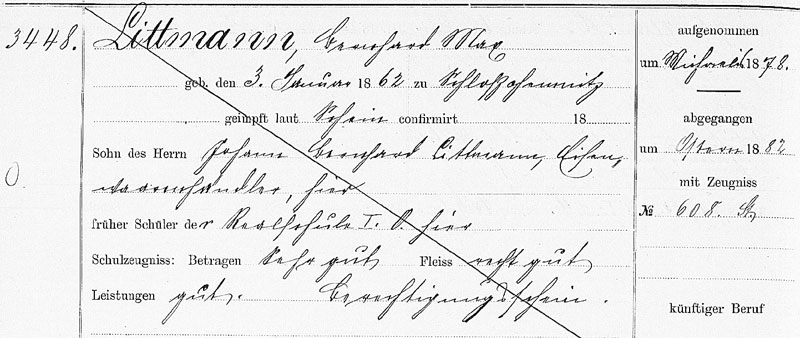 3448. Littmann, Bernhard Max
geb. den 3. Januar 1862 zu Schloßchemnitz
geimpft laut Schein confirmirt 18
Sohn des Herrn Johann Bernhard Littmann, Eisen-
waarenhändler, hier
früher Schüler der Realschule I. O. hier
Schulzeugniss: Betragen Sehr gut Fleiss recht gut
Leistungen gut. Berechtigungsschein.
aufgenommen
um Michaelis 1878.
abgegangen
um Ostern 1882
mit Zeugniss
№ 608.
künftiger Beruf